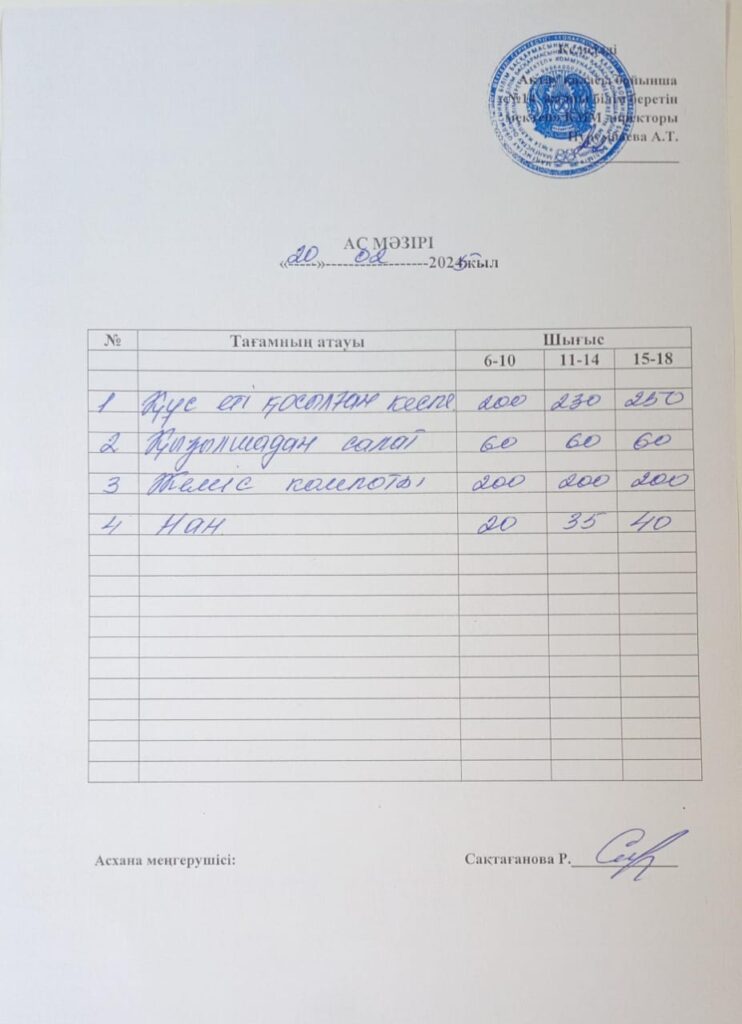 Келісілді
Ақтау қаласы бойынша
«№14 жалпы білім беретін
мектеп» КММ директоры
А.Т.
АС МӘЗІРІ
«20» 02 2025 жыл
№ Тағамның атауы Шығыс
6-10 11-14 15-18
1 Құс еті қосылған кеспе 200 230 250
2 Қызылшадан салат 60 60 60
3 Жеміс компоты 200 200 200
4 Нан 20 35 40
Асхана меңгерушісі: Сақтағанова Р.